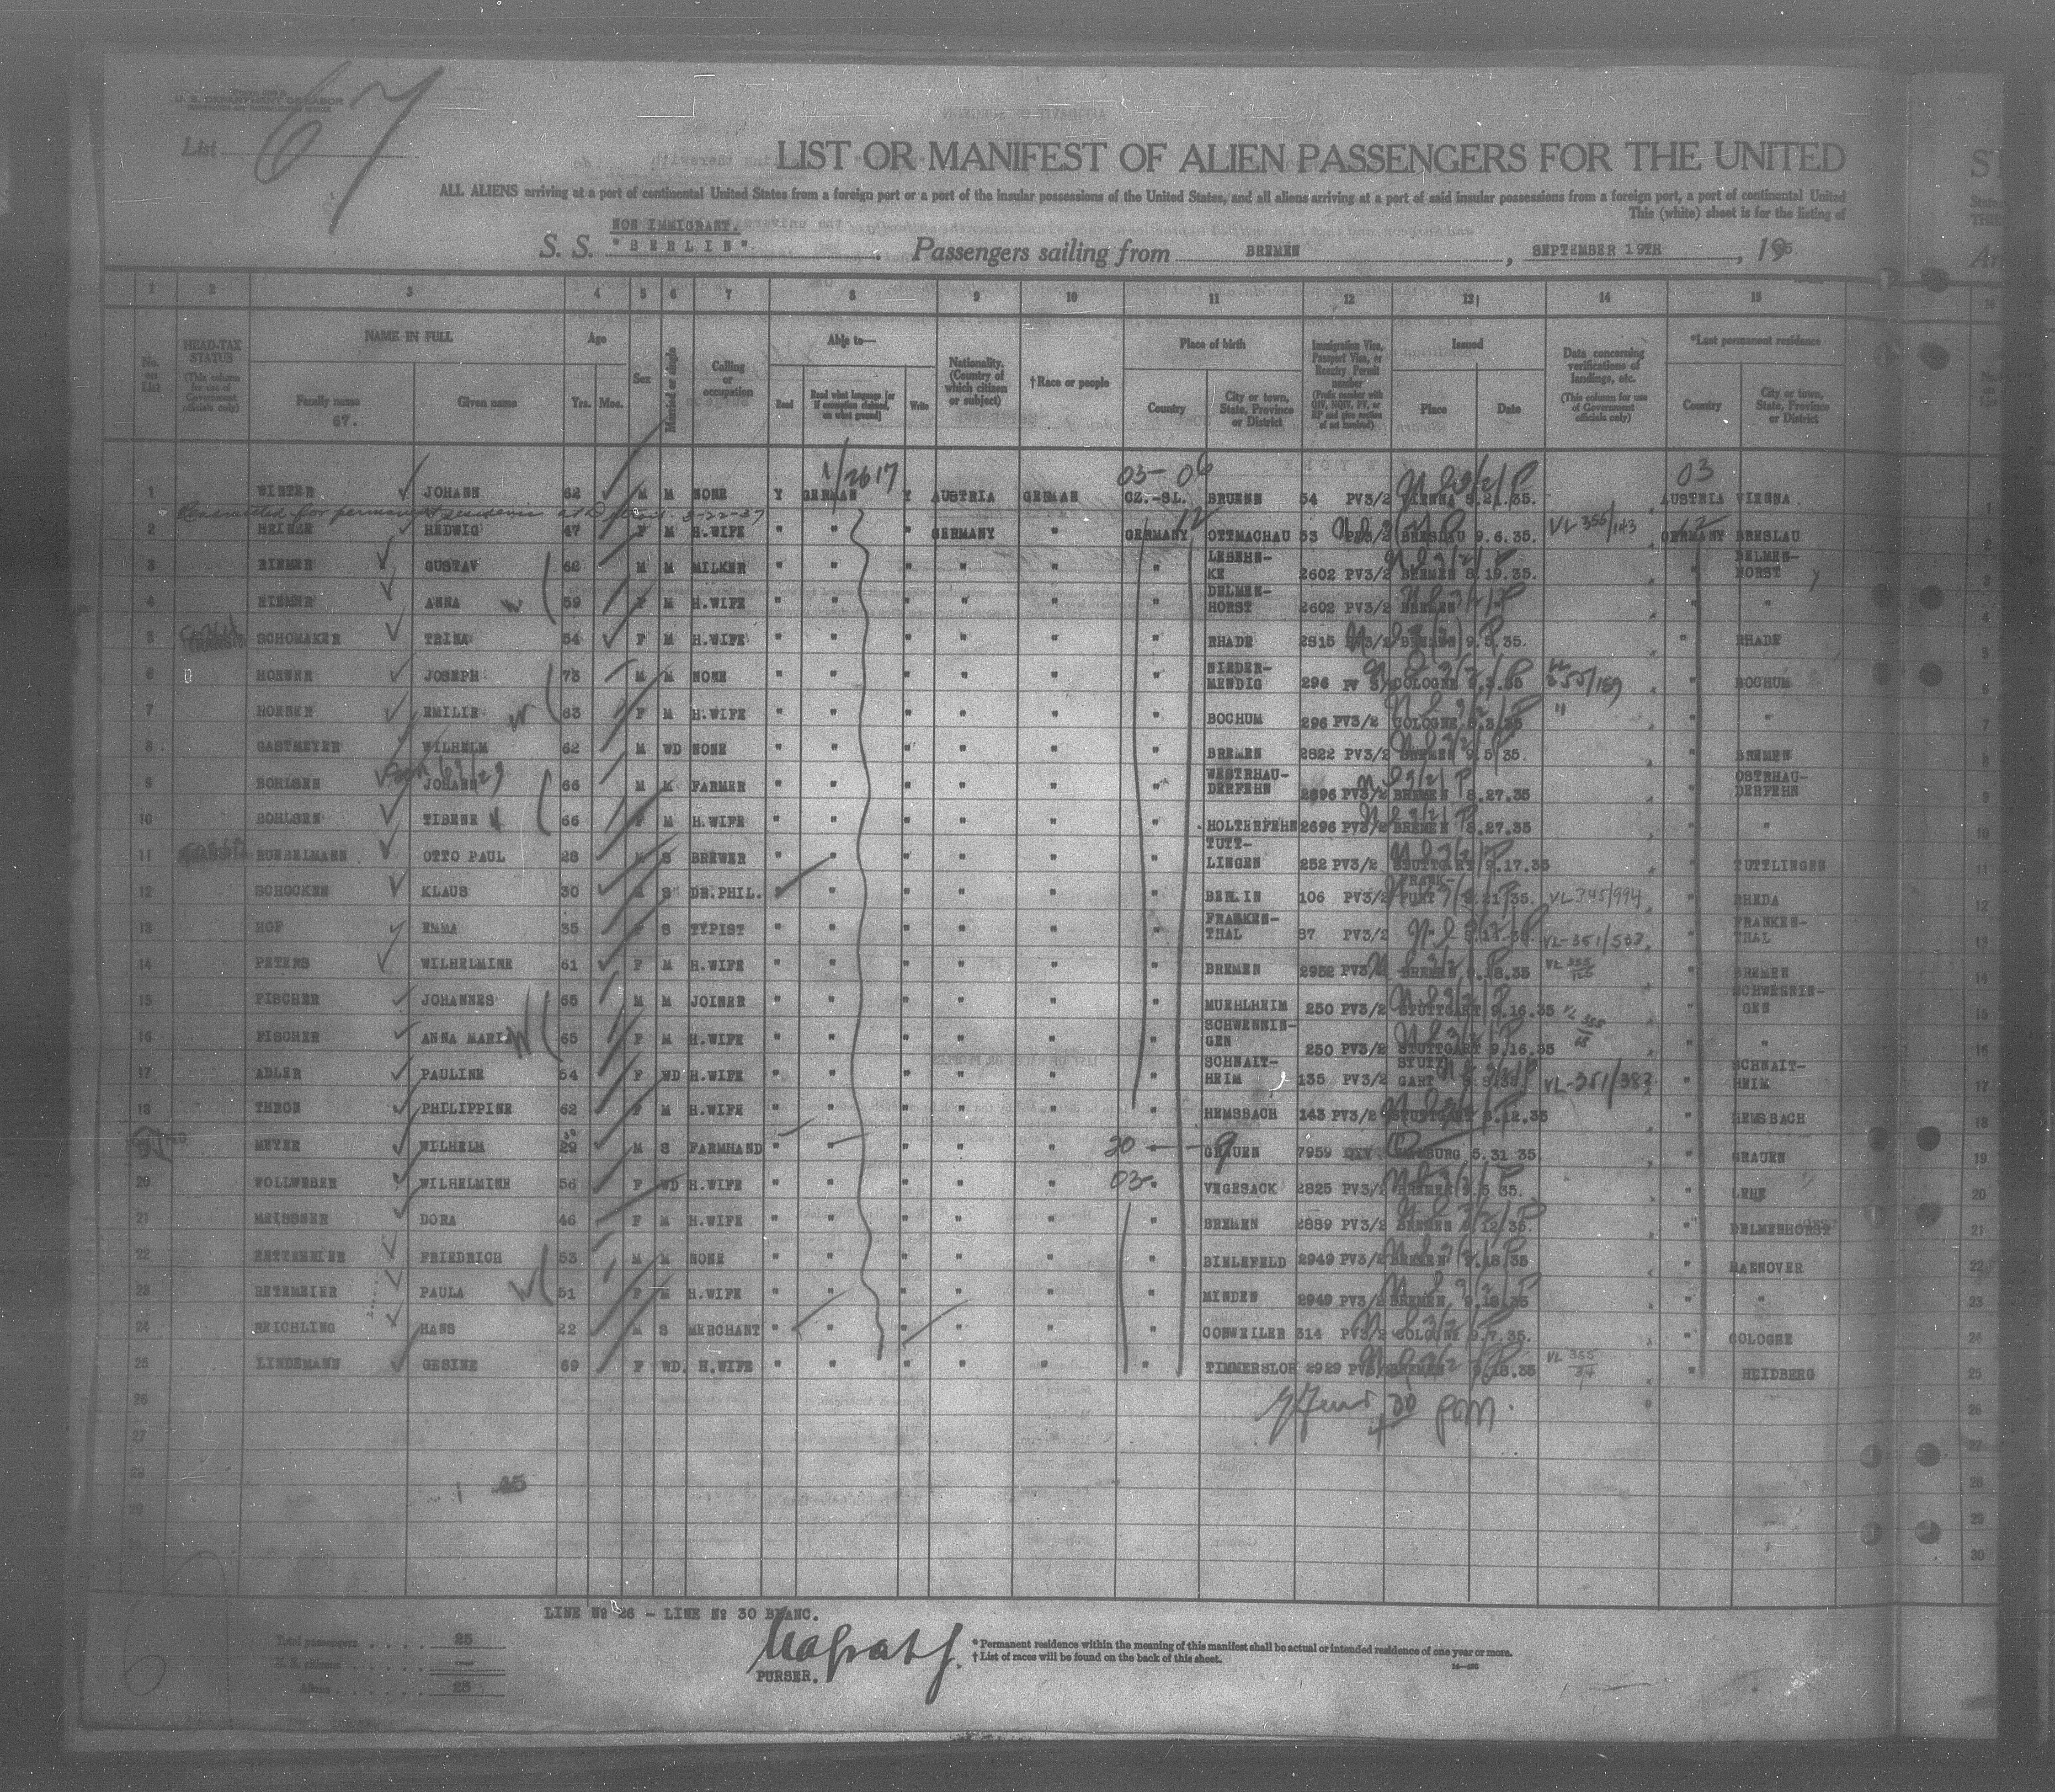 U. S. DEPARTMENT OF LABOR
List 67
LIST OR MANIFEST OF ALIEN PASSENGERS FOR THE UNITED
ALL ALIENS arriving at a port of continental United States from a foreign port or a port of the insular possessions of the United States, and all aliens arriving at a port of said insular possessions from a foreign port, a port of continental United
This (white) sheet is for the listing of
NON IMMIGRANT.
S. S. "BERLIN". Passengers sailing from BREMEN, SEPTEMBER 19TH, 1935.
1 2 3 4 5 6 7 8 9 10 11 12 13 14 15
No. on List
HEAD-TAX STATUS (This column for use of Government officials only)
NAME IN FULL
Family name 67.
Given name
Age Yrs. Mos.
Sex
Married or single
Calling or occupation
Able to—
Read
Read what language [or if exemption claimed, on what ground]
Write
Nationality. (Country of which citizen or subject)
†Race or people
Place of birth
Country
City or town, State, Province or District
Immigration Visa, Passport Visa, or Reentry Permit number
Issued
Place
Date
Data concerning verifications of landings, etc. (This column for use of Government officials only)
*Last permanent residence
Country
City or town, State, Province or District
1/2617 03-06 03
1 WINTER JOHANN 62 M M NONE Y GERMAN Y AUSTRIA GERMAN CZ.-SL. BRUENN 54 PV3/2 VIENNA 9.21.35. AUSTRIA VIENNA
2 HEINZE HEDWIG 47 F M H.WIFE " " " GERMANY " GERMANY OTTMACHAU 53 PV3/2 BRESLAU 9.6.35. VL 355/143 GERMANY BRESLAU
3 RIEMER GUSTAV 62 M M MILKER " " " " " " LEBEHNKE 2602 PV3/2 BREMEN 8.19.35. " DELMENHORST
4 RIEMER ANNA 59 F M H.WIFE " " " " " " DELMENHORST 2602 PV3/2 BREMEN " "
5 SCHOMAKER TRINA 54 F M H.WIFE " " " " " " RHADE 2815 PV3/2 BREMEN 9.5.35. " RHADE
6 HOENER JOSEPH 73 M M NONE " " " " " " NIEDERMENDIG 296 PV 3/2 COLOGNE 9.3.35 VL 355/159 " BOCHUM
7 HOENER EMILIE 63 F M H.WIFE " " " " " " BOCHUM 296 PV3/2 COLOGNE 9.3.35 " " "
8 GASTMEYER WILHELM 62 M WD NONE " " " " " " BREMEN 2822 PV3/2 BREMEN 9.5.35. " BREMEN
9 BOHLSEN JOHANN 66 M M FARMER " " " " " " WESTRHAUDERFEHN 2696 PV3/2 BREMEN 8.27.35 " OSTRHAUDERFEHN
10 BOHLSEN TIBENE 66 F M H.WIFE " " " " " " HOLTERFEHN 2696 PV3/2 BREMEN 8.27.35 " "
11 RUEBELMANN OTTO PAUL 28 M S BREWER " " " " " " TUTTLINGEN 252 PV3/2 STUTTGART 9.17.35 " TUTTLINGEN
12 SCHOCKEN KLAUS 30 M S DR.PHIL. " " " " " " BERLIN 106 PV3/2 FRANKFURT 9.21.35. VL 345/994 " RHEDA
13 HOF EMMA 35 F S TYPIST " " " " " " FRANKENTHAL 87 PV3/2 VL-351/587 " FRANKENTHAL
14 PETERS WILHELMINE 61 F M H.WIFE " " " " " " BREMEN 2952 PV3/2 BREMEN 9.18.35 " BREMEN
15 FISCHER JOHANNES 65 M M JOINER " " " " " " MUEHLHEIM 250 PV3/2 STUTTGART 9.16.35 " SCHWENNINGEN
16 FISCHER ANNA MARIA 65 F M H.WIFE " " " " " " SCHWENNINGEN 250 PV3/2 STUTTGART 9.16.35 " "
17 ADLER PAULINE 54 F WD H.WIFE " " " " " " SCHNAITHEIM 135 PV3/2 STUTTGART VL-351/382 " SCHNAITHEIM
18 THRON PHILIPPINE 62 F M H.WIFE " " " " " " HEMSBACH 143 PV3/2 STUTTGART 9.12.35 " HEMSBACH
19 MEYER WILHELM 29 M S FARMHAND " " " " " 20 — 9 GRAUEN 7959 QIV HAMBURG 5.31 35. " GRAUEN
20 VOLLWEBER WILHELMINE 56 F WD H.WIFE " " " " " 03 " VEGESACK 2825 PV3/2 BREMEN 9.5 35. " LEHE
21 MEISSNER DORA 46 F M H.WIFE " " " " " " BREMEN 2889 PV3/2 BREMEN 9.12.35. " DELMENHORST
22 RETTEMEIER FRIEDRICH 53 M M NONE " " " " " " BIELEFELD 2949 PV3/2 BREMEN 9.18.35 " HANNOVER
23 RETEMEIER PAULA 51 F M H.WIFE " " " " " " MINDEN 2949 PV3/2 BREMEN 9.18.35 " "
24 REICHLING HANS 22 M S MERCHANT " " " " " " CONWEILER 314 PV3/2 COLOGNE 9.7.35. " COLOGNE
25 LINDEMANN GESINE 69 F WD. H.WIFE " " " " " " TIMMERSLOH 2929 PV3/2 BREMEN 9.18.35 VL 355/34 " HEIDBERG
26
27
28
29
30
LINE № 26 - LINE № 30 BLANC.
Total passengers . . . . 25
U. S. citizens . . . . —
Aliens . . . . . . 25
PURSER.
* Permanent residence within the meaning of this manifest shall be actual or intended residence of one year or more.
† List of races will be found on the back of this sheet.